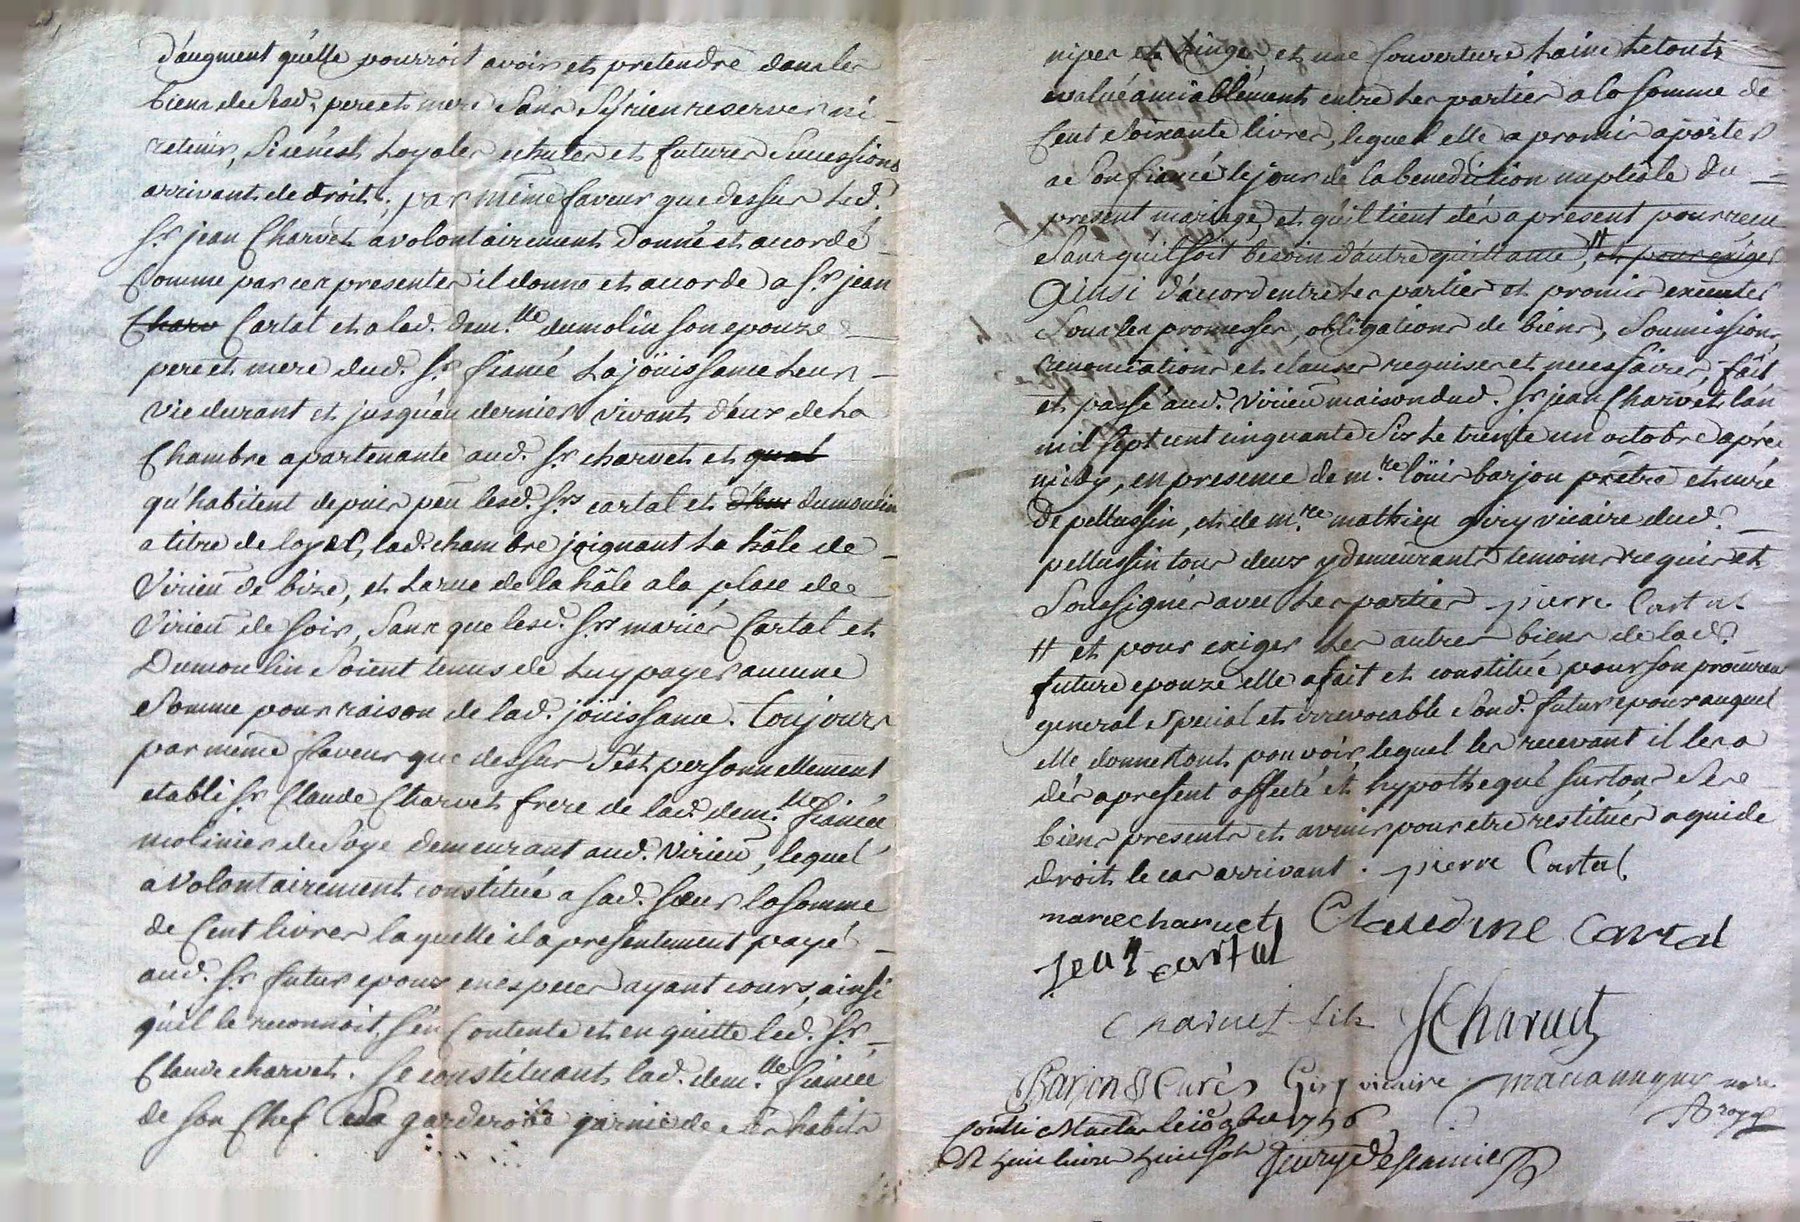 d'augment qu'elle pourroit avoir et pretendre dans les
biens de sesd. pere et mere sans s'y rien reserver ni
retenir, si ce n'est loyales echutes et futures sucessions
arrivants de droit; par même faveur que dessus led.
Sr. jean Charvet a volontairement donné et accordé
comme par ces presentes il donne et accorde a Sr. jean
Charv Cartal et a lad. dem.lle dumolin son epouze
pere et mere dud. Sr. fiancé la joüissance leur
vie durant et jusqu'au dernier vivant d'eux de la
Chambre apartenante aud. Sr. charvet et
qu'habitent depuis peu lesd. Srs. cartal et dumoulin
a titre de loyer, lad. chambre joignant la hâle de
Virieu de bize, et la rue de la hâle a la place de
Virieu de soir, sans que lesd. Srs mariés Cartal et
Dumoulin soient tenus de luy payer aucune
somme pour raison de lad. joüissance. Toujours
par même faveur que dessus s'est personnellement
etabli Sr. Claude Charvet frere de lad. dem.lle fiancée
molinier de soye demeurant aud. Virieu, lequel
a volontairement constitué a sad. sœur la somme
de Cent livres laquelle il a presentement payé
aud. Sr. futur epoux en especes ayant cours, ainsi
qu'il le reconnoit, s'en contente et en quitte led. Sr.
Claude charvet. Se constituant lad. dem.lle fiancée
de son Chef sa garderobe garnie de ses habits
nipes et linge et une Couverture laine le tout
evalué amiablement entre les parties a la somme de
Cent soixante livres, lequel elle a promis aporter
a son fiancé le jour de la benediction nuptiale du
present mariage, et qu'il tient dés a present pour reçu
sans qu'il soit besoin d'autre quittance, # et pour exiger
Ainsi d'accord entre les parties et promis executer
sous les promesses, obligations de biens, soumissions,
renonciations et clauses requises et necessaires, fait
et passé aud. Virieu maison dud. Sr. jean Charvet l'an
mil sept cent cinquante six le trente un octobre après
midy, en presence de m.re loüis barjon prêtre et curé
de pellussin, et de m.re mathieu giry vicaire dud.
pellussin tous deux y demeurants temoins requis et
soussignés avec les parties pierre Cartal
# et pour exiger les autres biens de lad.
future epouze elle a fait et constitué pour son procureur
general special et irrevocable sond. futur epoux auquel
elle donne tout pouvoir, lequel les recevant il les a
dés a present affecté et hypothequé sur tous ses
biens presents et avenir pour etre restitués a qui de
droit le cas arrivant. pierre Cartal
marie charvet Claudine Cartal
Jean cartal
Charvet fils J Charvet
Barjon Curé Giry vicaire